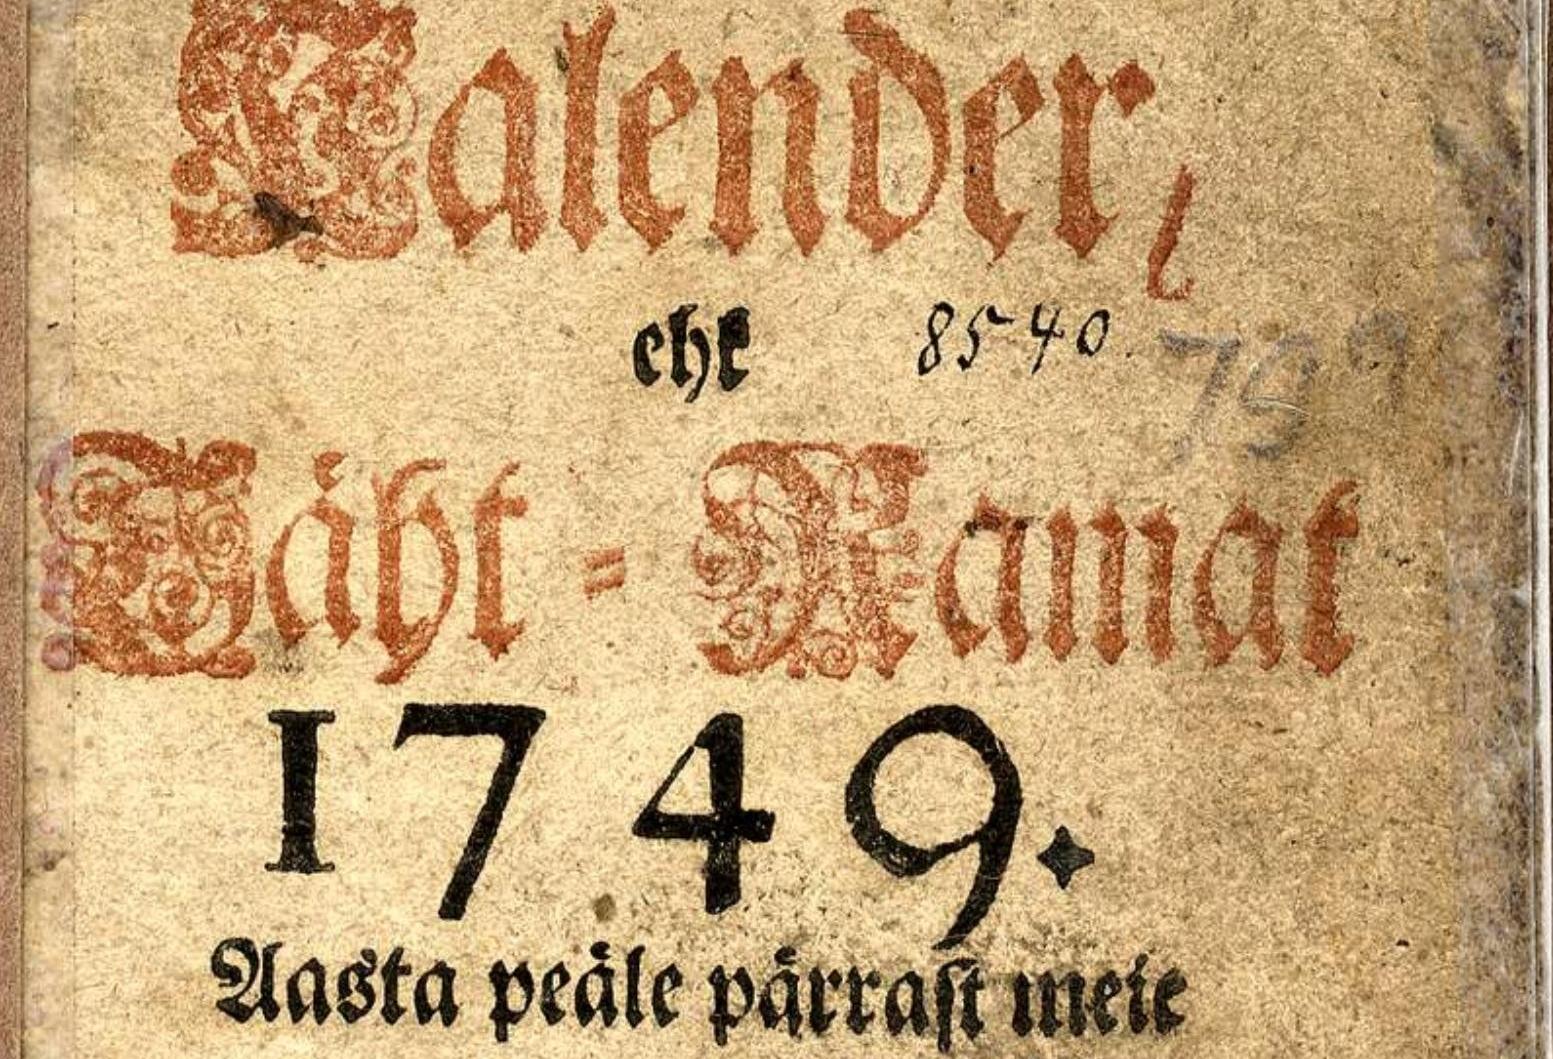 Kalender,
ehk 8540.
Täht-Ramat
1749.
Aasta peäle pärrast meie